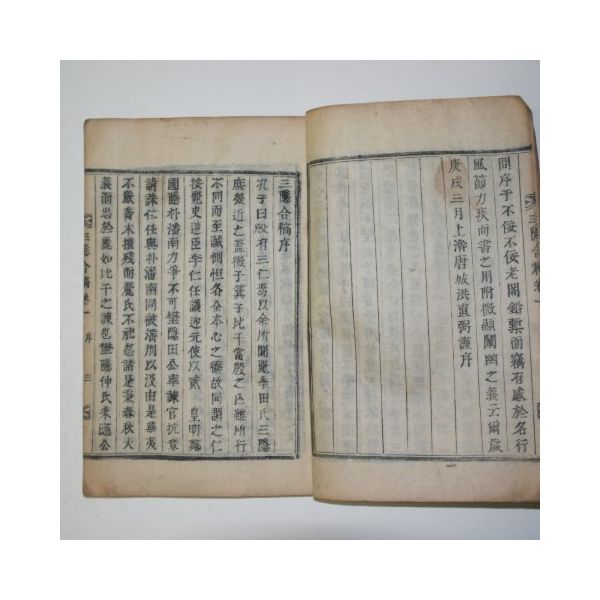 問序于不佞不佞老閣鉛槧而竊有感於名行
風節力疾而書之用附微顯闡幽之義云爾歲
庚戌三月上澣唐城洪直弼謹序
三隱合稿序
孔子曰殷有三仁焉以余所聞麗季田氏三隱
庶幾近之蓋微子箕子比干當殷之亡雖所行
不同而至誠惻怛各全本心之德故同謂之仁
按麗史逆臣李仁任議迎元使以貳 皇明
國隱朴潘南力爭不可 隱田公 諫官抗章
請誅仁任與朴潘南同被 以沒由是華夷
不 喬木摧殘而麗氏不祀忽諸是秉春秋大
義而忠於麗如比干之諫也 隱仲氏耒隱公
三隱合稿卷一
三隱合稿卷一 序 三